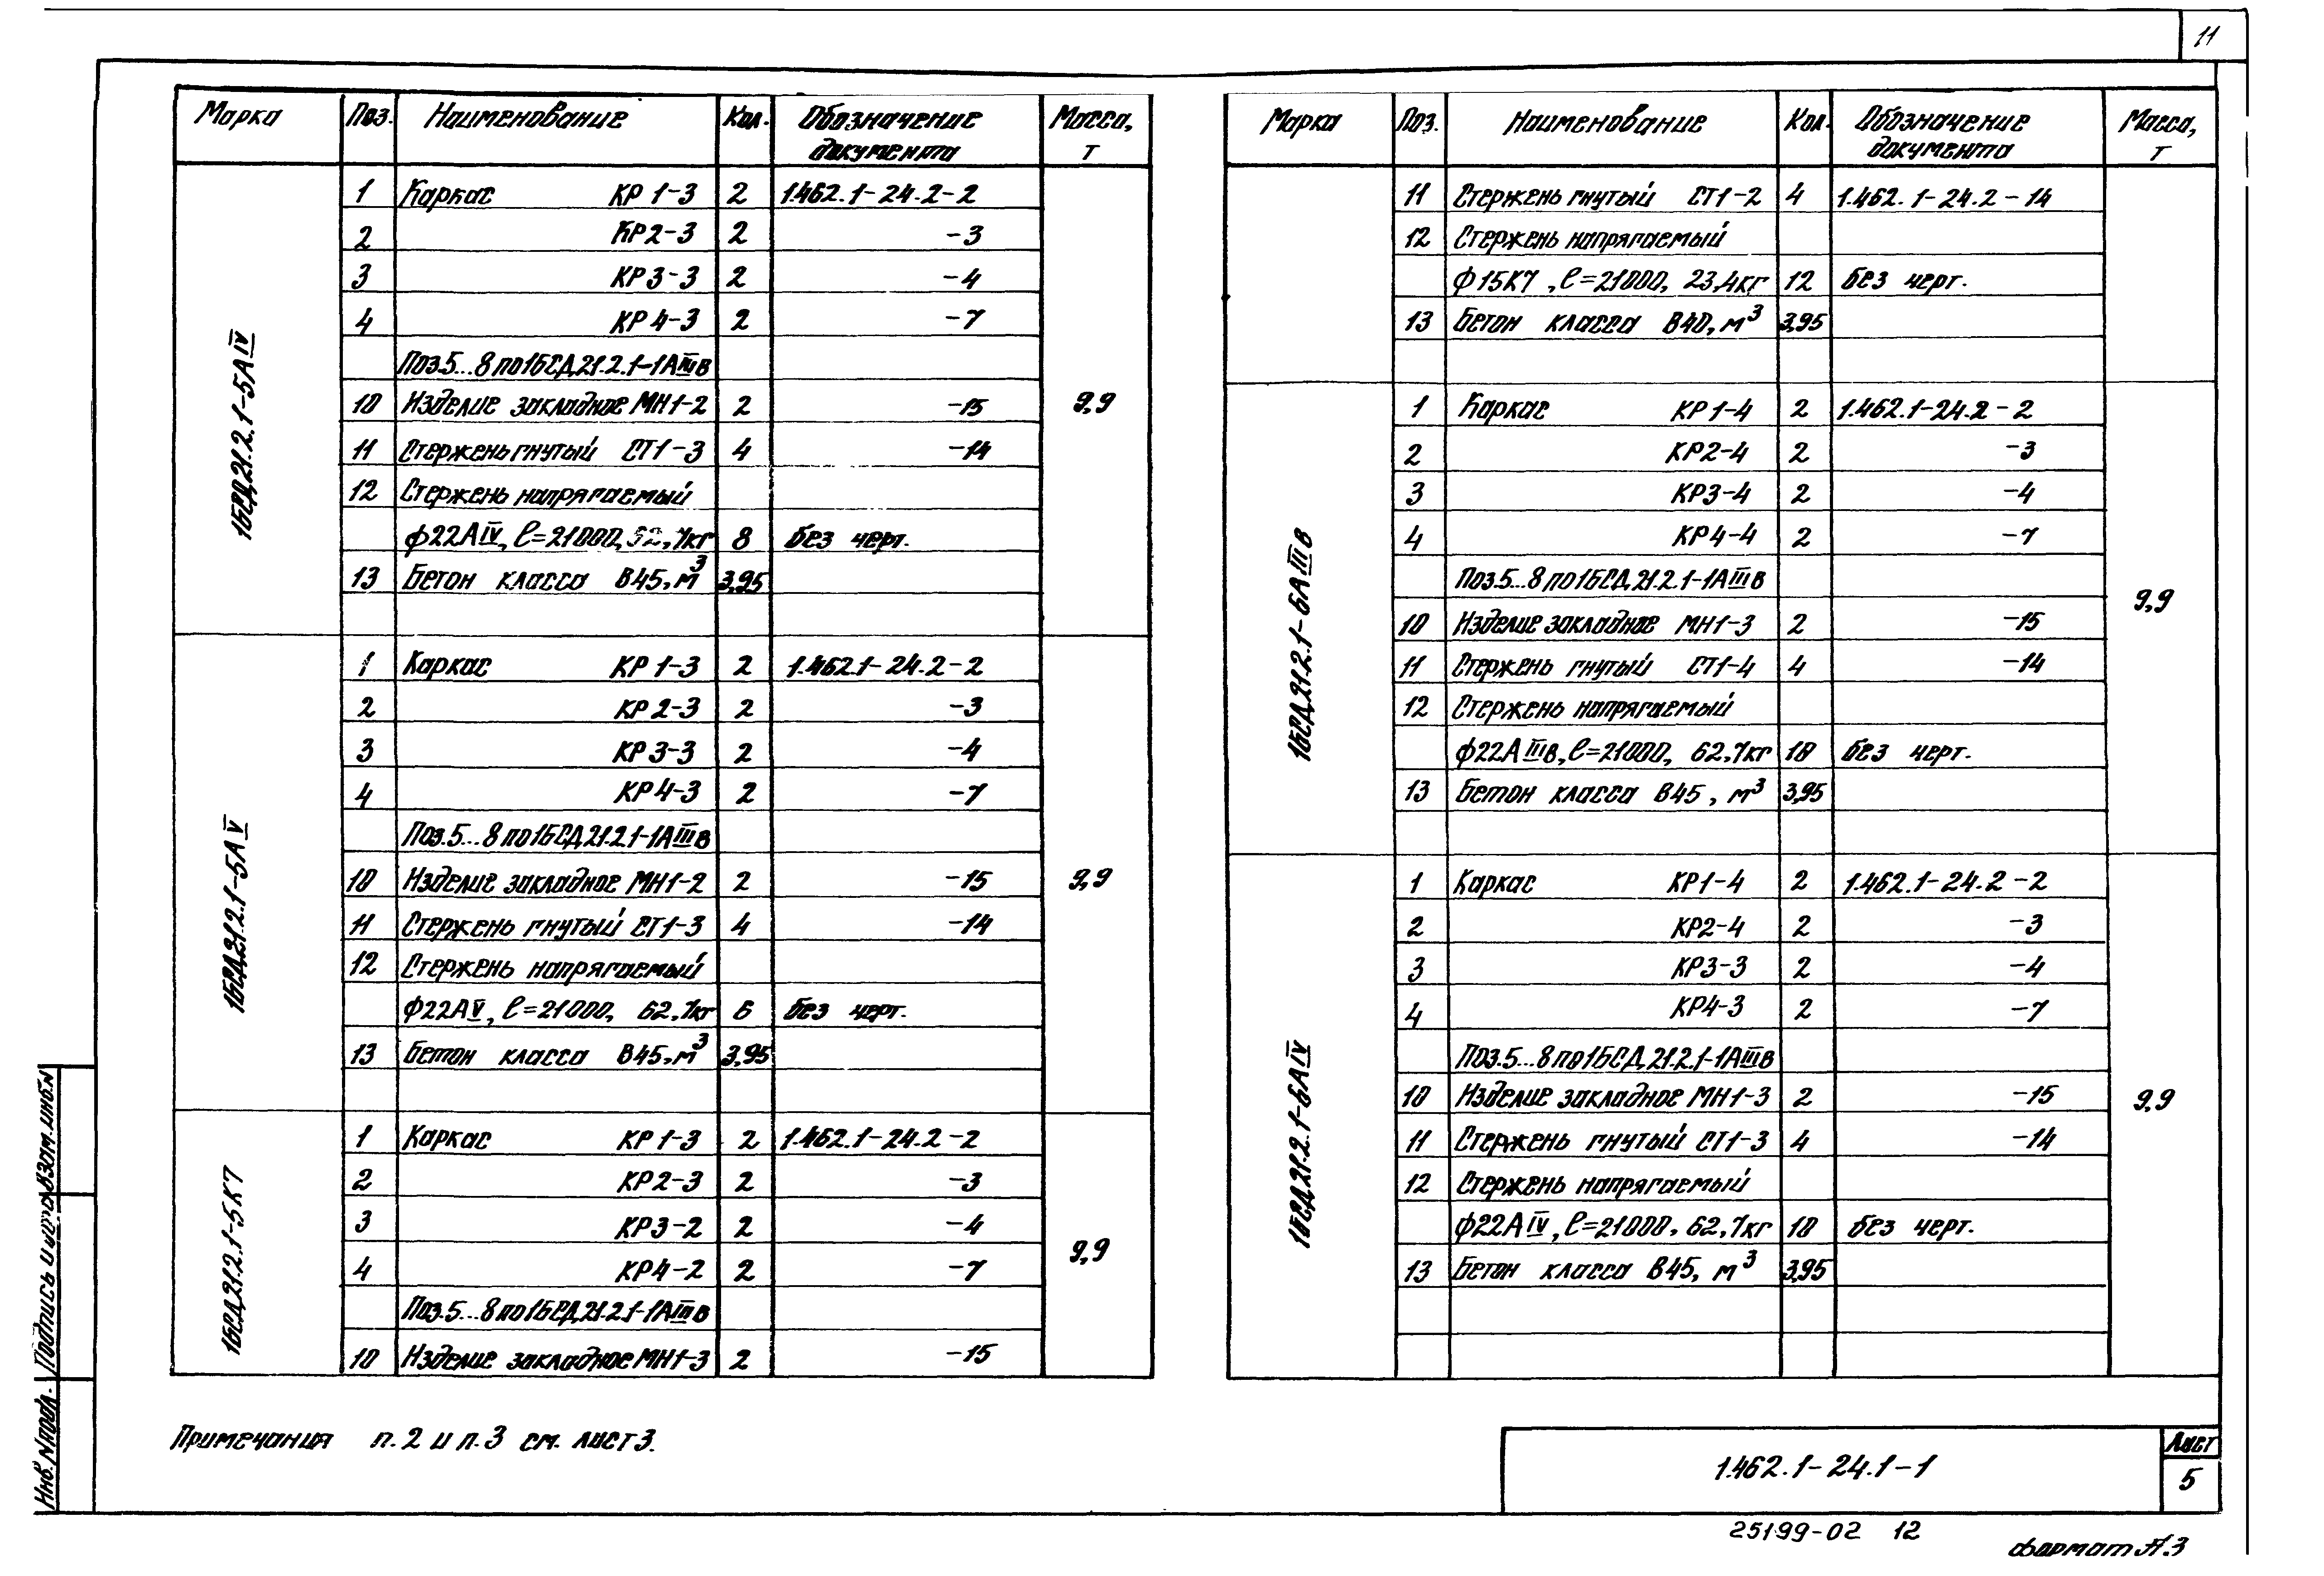 11
Марка Поз. Наименование Кол. Обозначение документа Масса, т
1БСД21.2.1-5АIV
1 Каркас КР1-3 2 1.462.1-24.2-2
2 КР2-3 2 -3
3 КР3-3 2 -4
4 КР4-3 2 -7
Поз.5...8 по 1БСД21.2.1-1АIIIв
10 Изделие закладное МН1-2 2 -15 9,9
11 Стержень гнутый СТ1-3 4 -14
12 Стержень напрягаемый
ф22АIV, ℓ=21000, 62,7кг 8 без черт.
13 Бетон класса В45, м³ 3,95
1БСД21.2.1-5АV
1 Каркас КР1-3 2 1.462.1-24.2-2
2 КР2-3 2 -3
3 КР3-3 2 -4
4 КР4-3 2 -7
Поз.5...8 по 1БСД21.2.1-1АIIIв
10 Изделие закладное МН1-2 2 -15 9,9
11 Стержень гнутый СТ1-3 4 -14
12 Стержень напрягаемый
ф22АV, ℓ=21000, 62,7кг 6 без черт.
13 Бетон класса В45, м³ 3,95
1БСД21.2.1-5К7
1 Каркас КР1-3 2 1.462.1-24.2-2
2 КР2-3 2 -3
3 КР3-2 2 -4
4 КР4-2 2 -7 9,9
Поз.5...8 по 1БСД21.2.1-1АIIIв
10 Изделие закладное МН1-3 2 -15
Марка Поз. Наименование Кол. Обозначение документа Масса, т
11 Стержень гнутый СТ1-2 4 1.462.1-24.2-14
12 Стержень напрягаемый
ф15К7, ℓ=21000, 23,4кг 12 без черт.
13 Бетон класса В40, м³ 3,95
1БСД21.2.1-6АIIIв
1 Каркас КР1-4 2 1.462.1-24.2-2
2 КР2-4 2 -3
3 КР3-4 2 -4
4 КР4-4 2 -7
Поз.5...8 по 1БСД21.2.1-1АIIIв 9,9
10 Изделие закладное МН1-3 2 -15
11 Стержень гнутый СТ1-4 4 -14
12 Стержень напрягаемый
ф22АIIIв, ℓ=21000, 62,7кг 10 без черт.
13 Бетон класса В45, м³ 3,95
1БСД21.2.1-6АIV
1 Каркас КР1-4 2 1.462.1-24.2-2
2 КР2-4 2 -3
3 КР3-3 2 -4
4 КР4-3 2 -7
Поз.5...8 по 1БСД21.2.1-1АIIIв
10 Изделие закладное МН1-3 2 -15 9,9
11 Стержень гнутый СТ1-3 4 -14
12 Стержень напрягаемый
ф22АIV, ℓ=21000, 62,7кг 10 без черт.
13 Бетон класса В45, м³ 3,95
Примечания п.2 и п.3 см. лист 3.
1.462.1-24.1-1
Лист
5
25199-02 12
формат А3
Инв.N подл. Подпись и дата Взам.инв.N